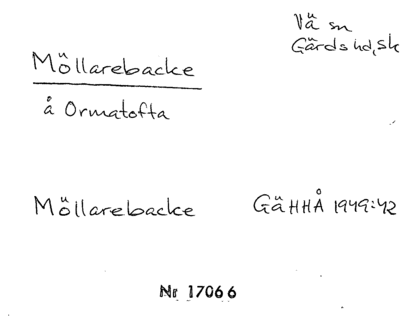 Vä sn
Gärds hd, Sk
Möllarebacke
å Ormatofta
Möllarebacke GäHHÅ 1949:42
Nr 17066